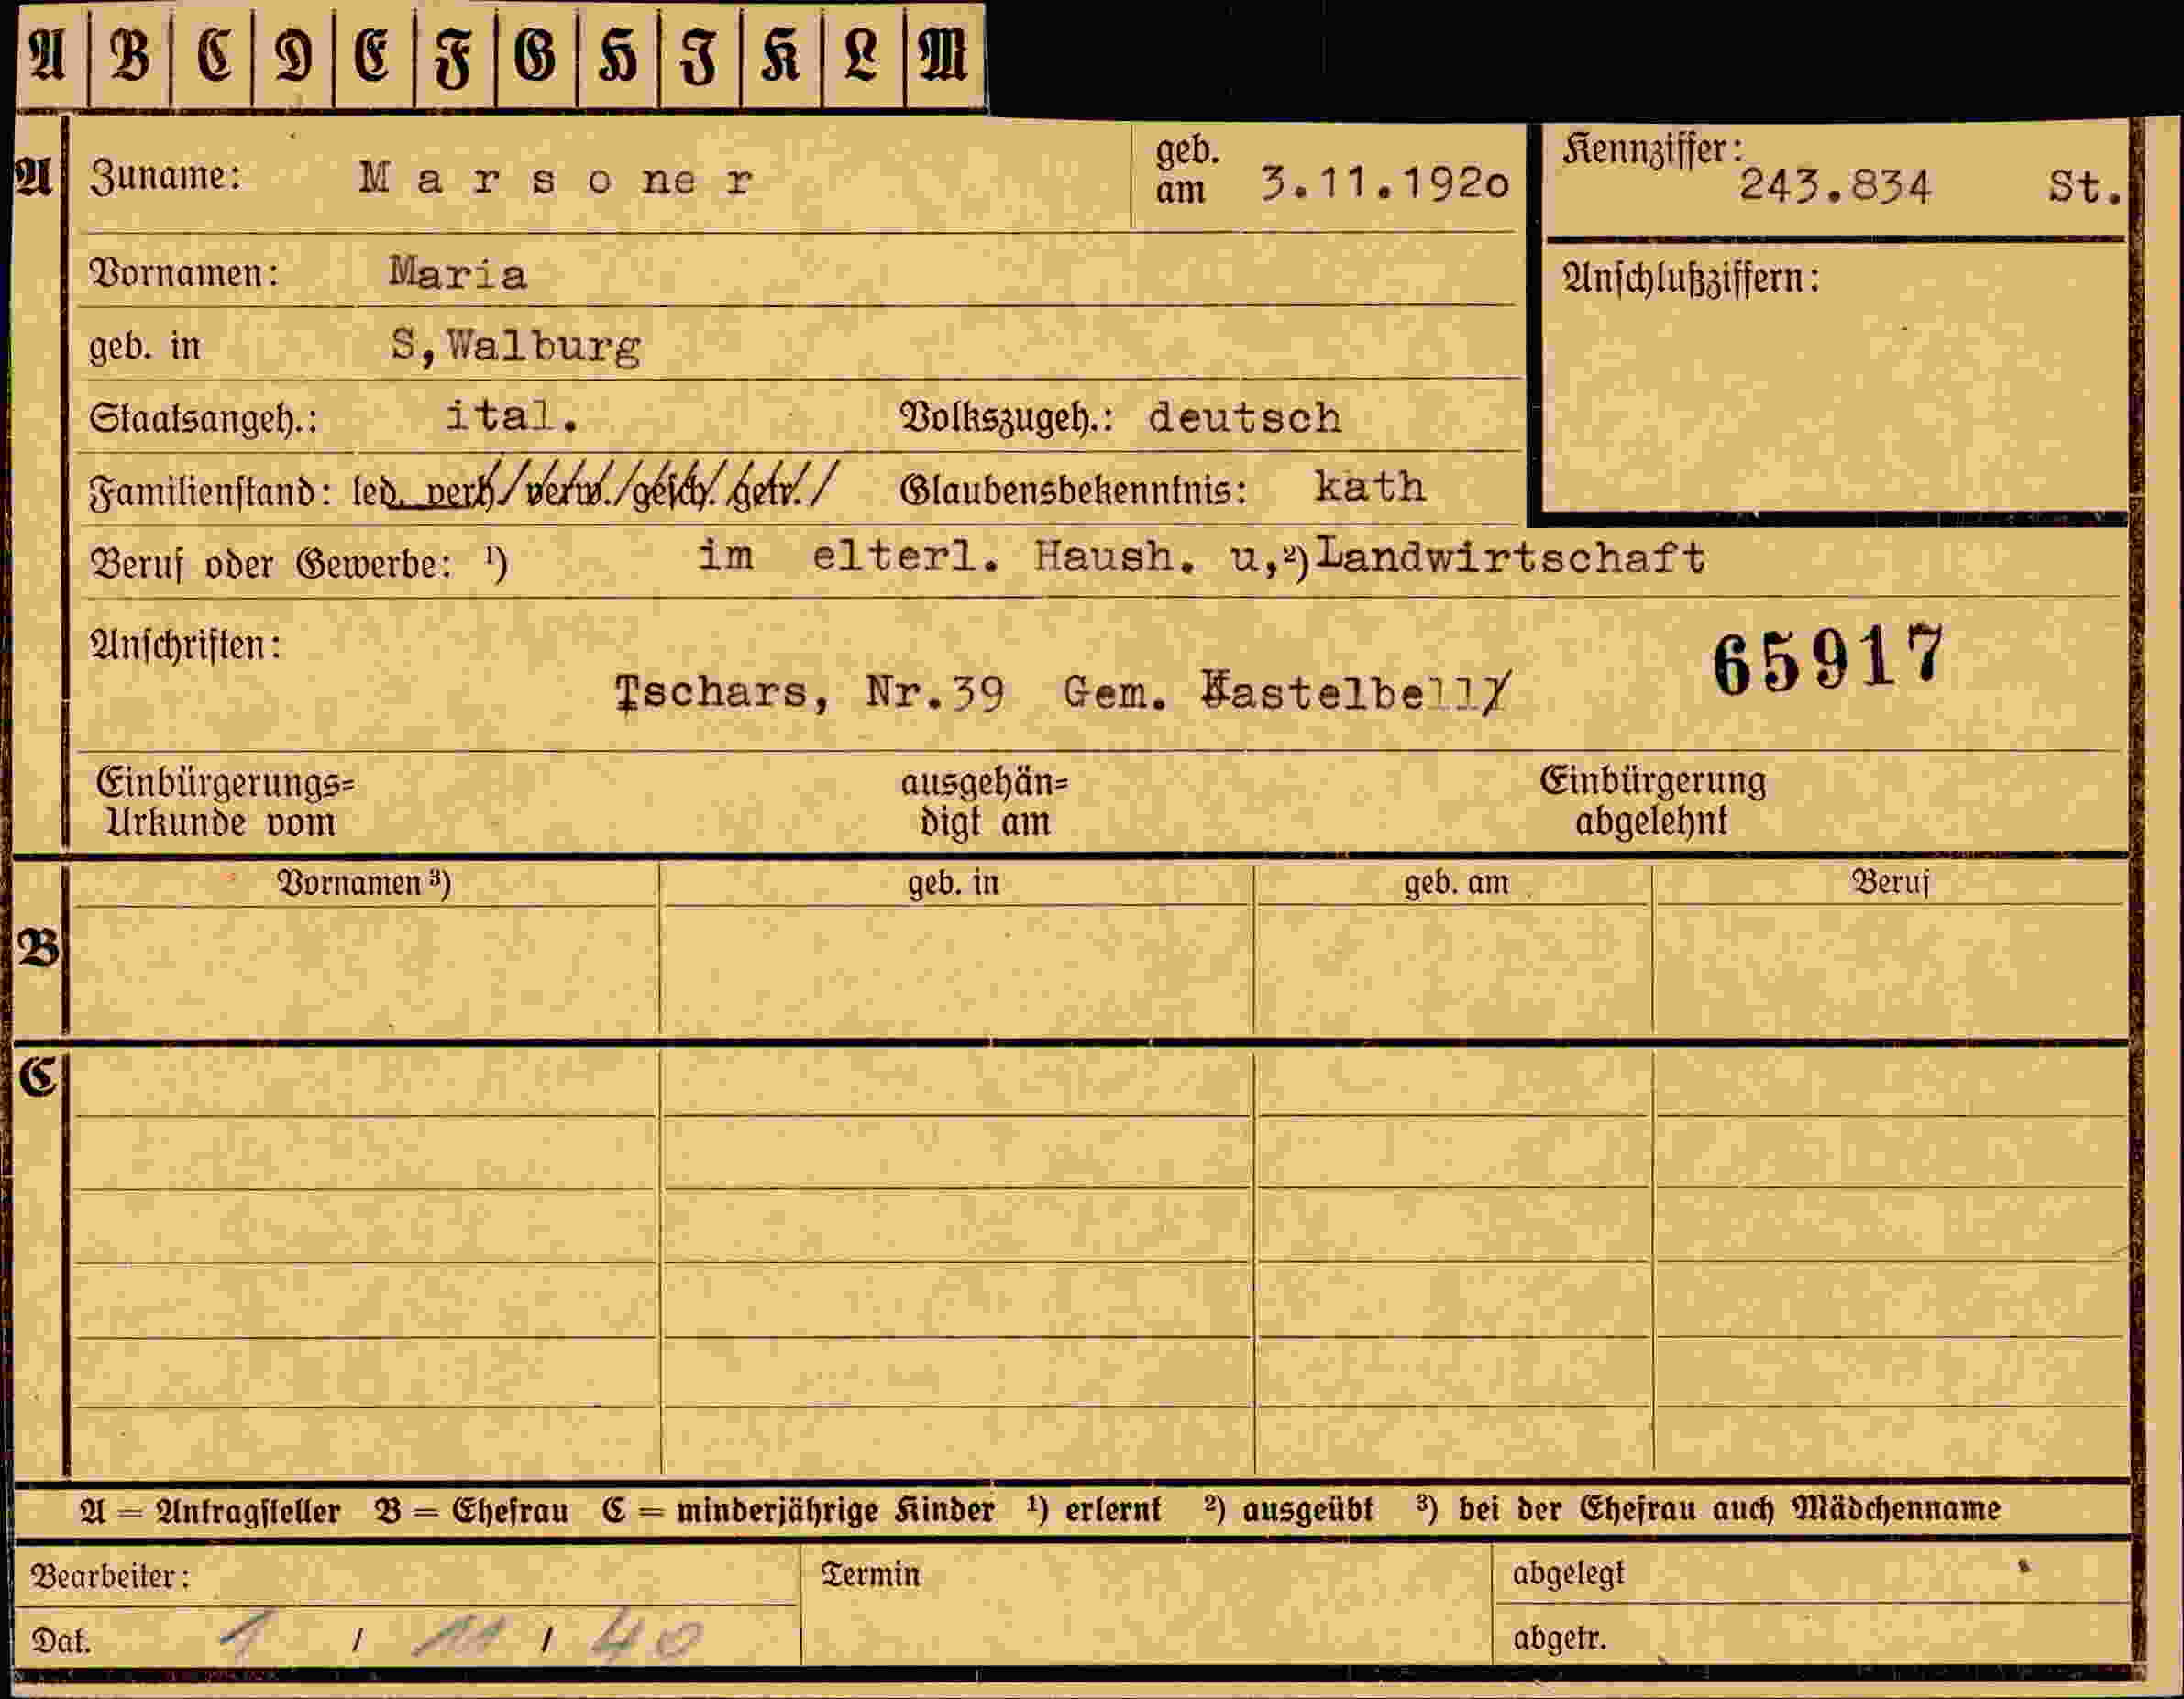 A B C D E F G H I K L M
A Zuname: Marsoner geb. am 3.11.1920 Kennziffer: 243.834 St.
Vornamen: Maria Anschlußziffern:
geb. in S,Walburg
Staatsangeh.: ital. Volkszugeh.: deutsch
Familienstand: led. verh./verw./gesch./getr./ Glaubensbekenntnis: kath
Beruf oder Gewerbe: ¹) im elterl. Haush. u,²) Landwirtschaft
Anschriften: 65917
Tschars, Nr.39 Gem. Kastelbell/
Einbürgerungs= ausgehän= Einbürgerung
Urkunde vom digt am abgelehnt
Vornamen ³) geb. in geb. am Beruf
B
C
A = Antragsteller B = Ehefrau C = minderjährige Kinder ¹) erlernt ²) ausgeübt ³) bei der Ehefrau auch Mädchenname
Bearbeiter: Termin abgelegt
Dat. 1 / 11 / 40 abgetr.